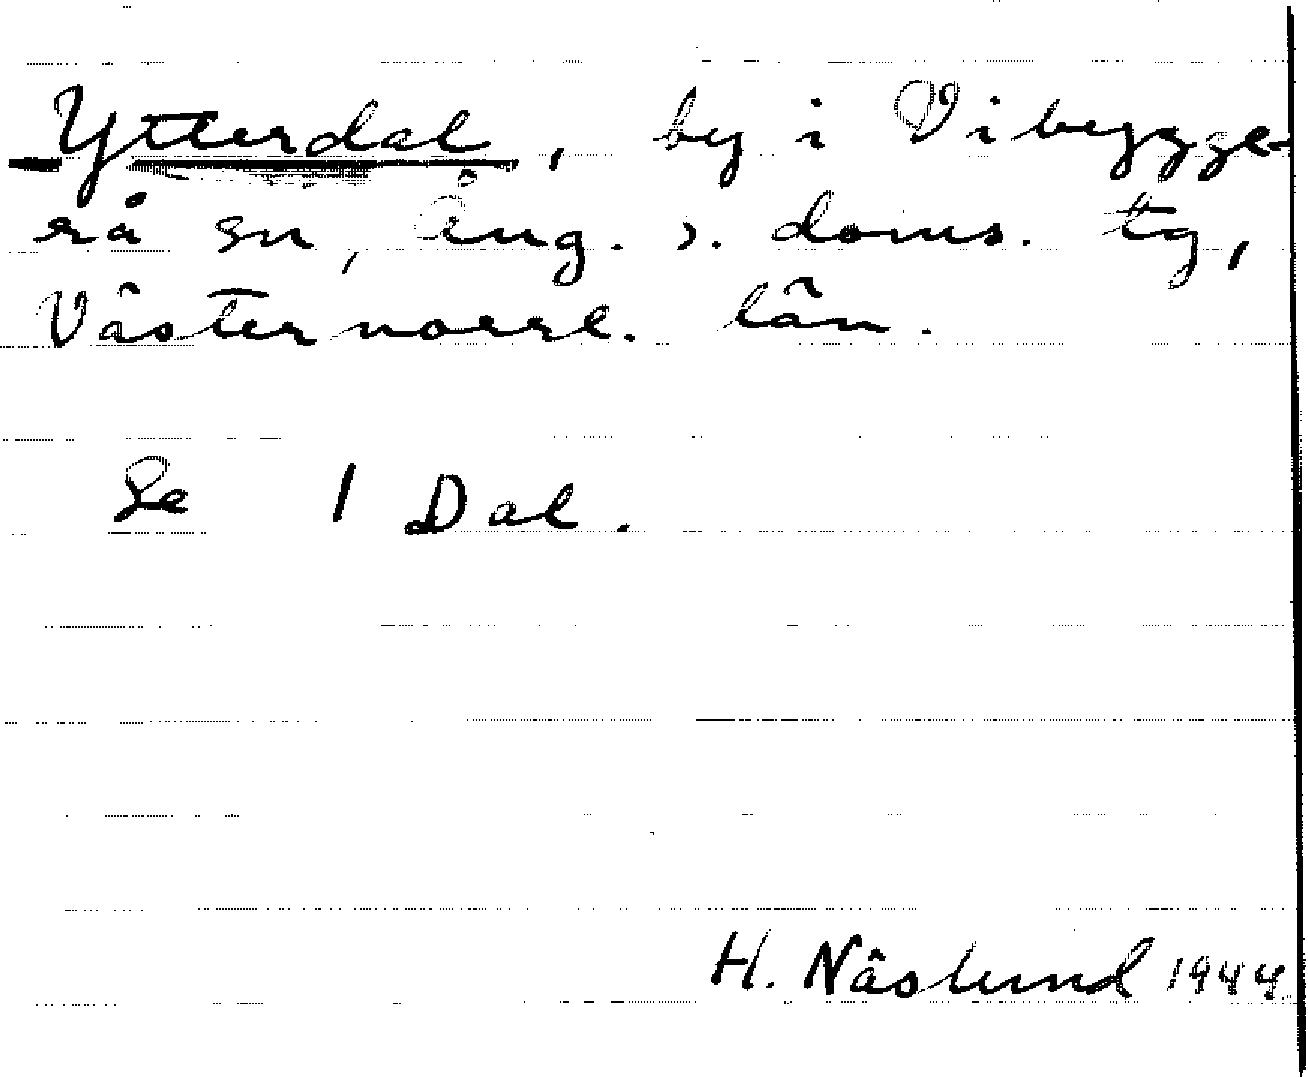 Ytterdal, by i Vibygge-
rå sn, Ång. s. doms. tg,
Västernorrl. län.
Se 1 Dal.
H. Näslund 1944.